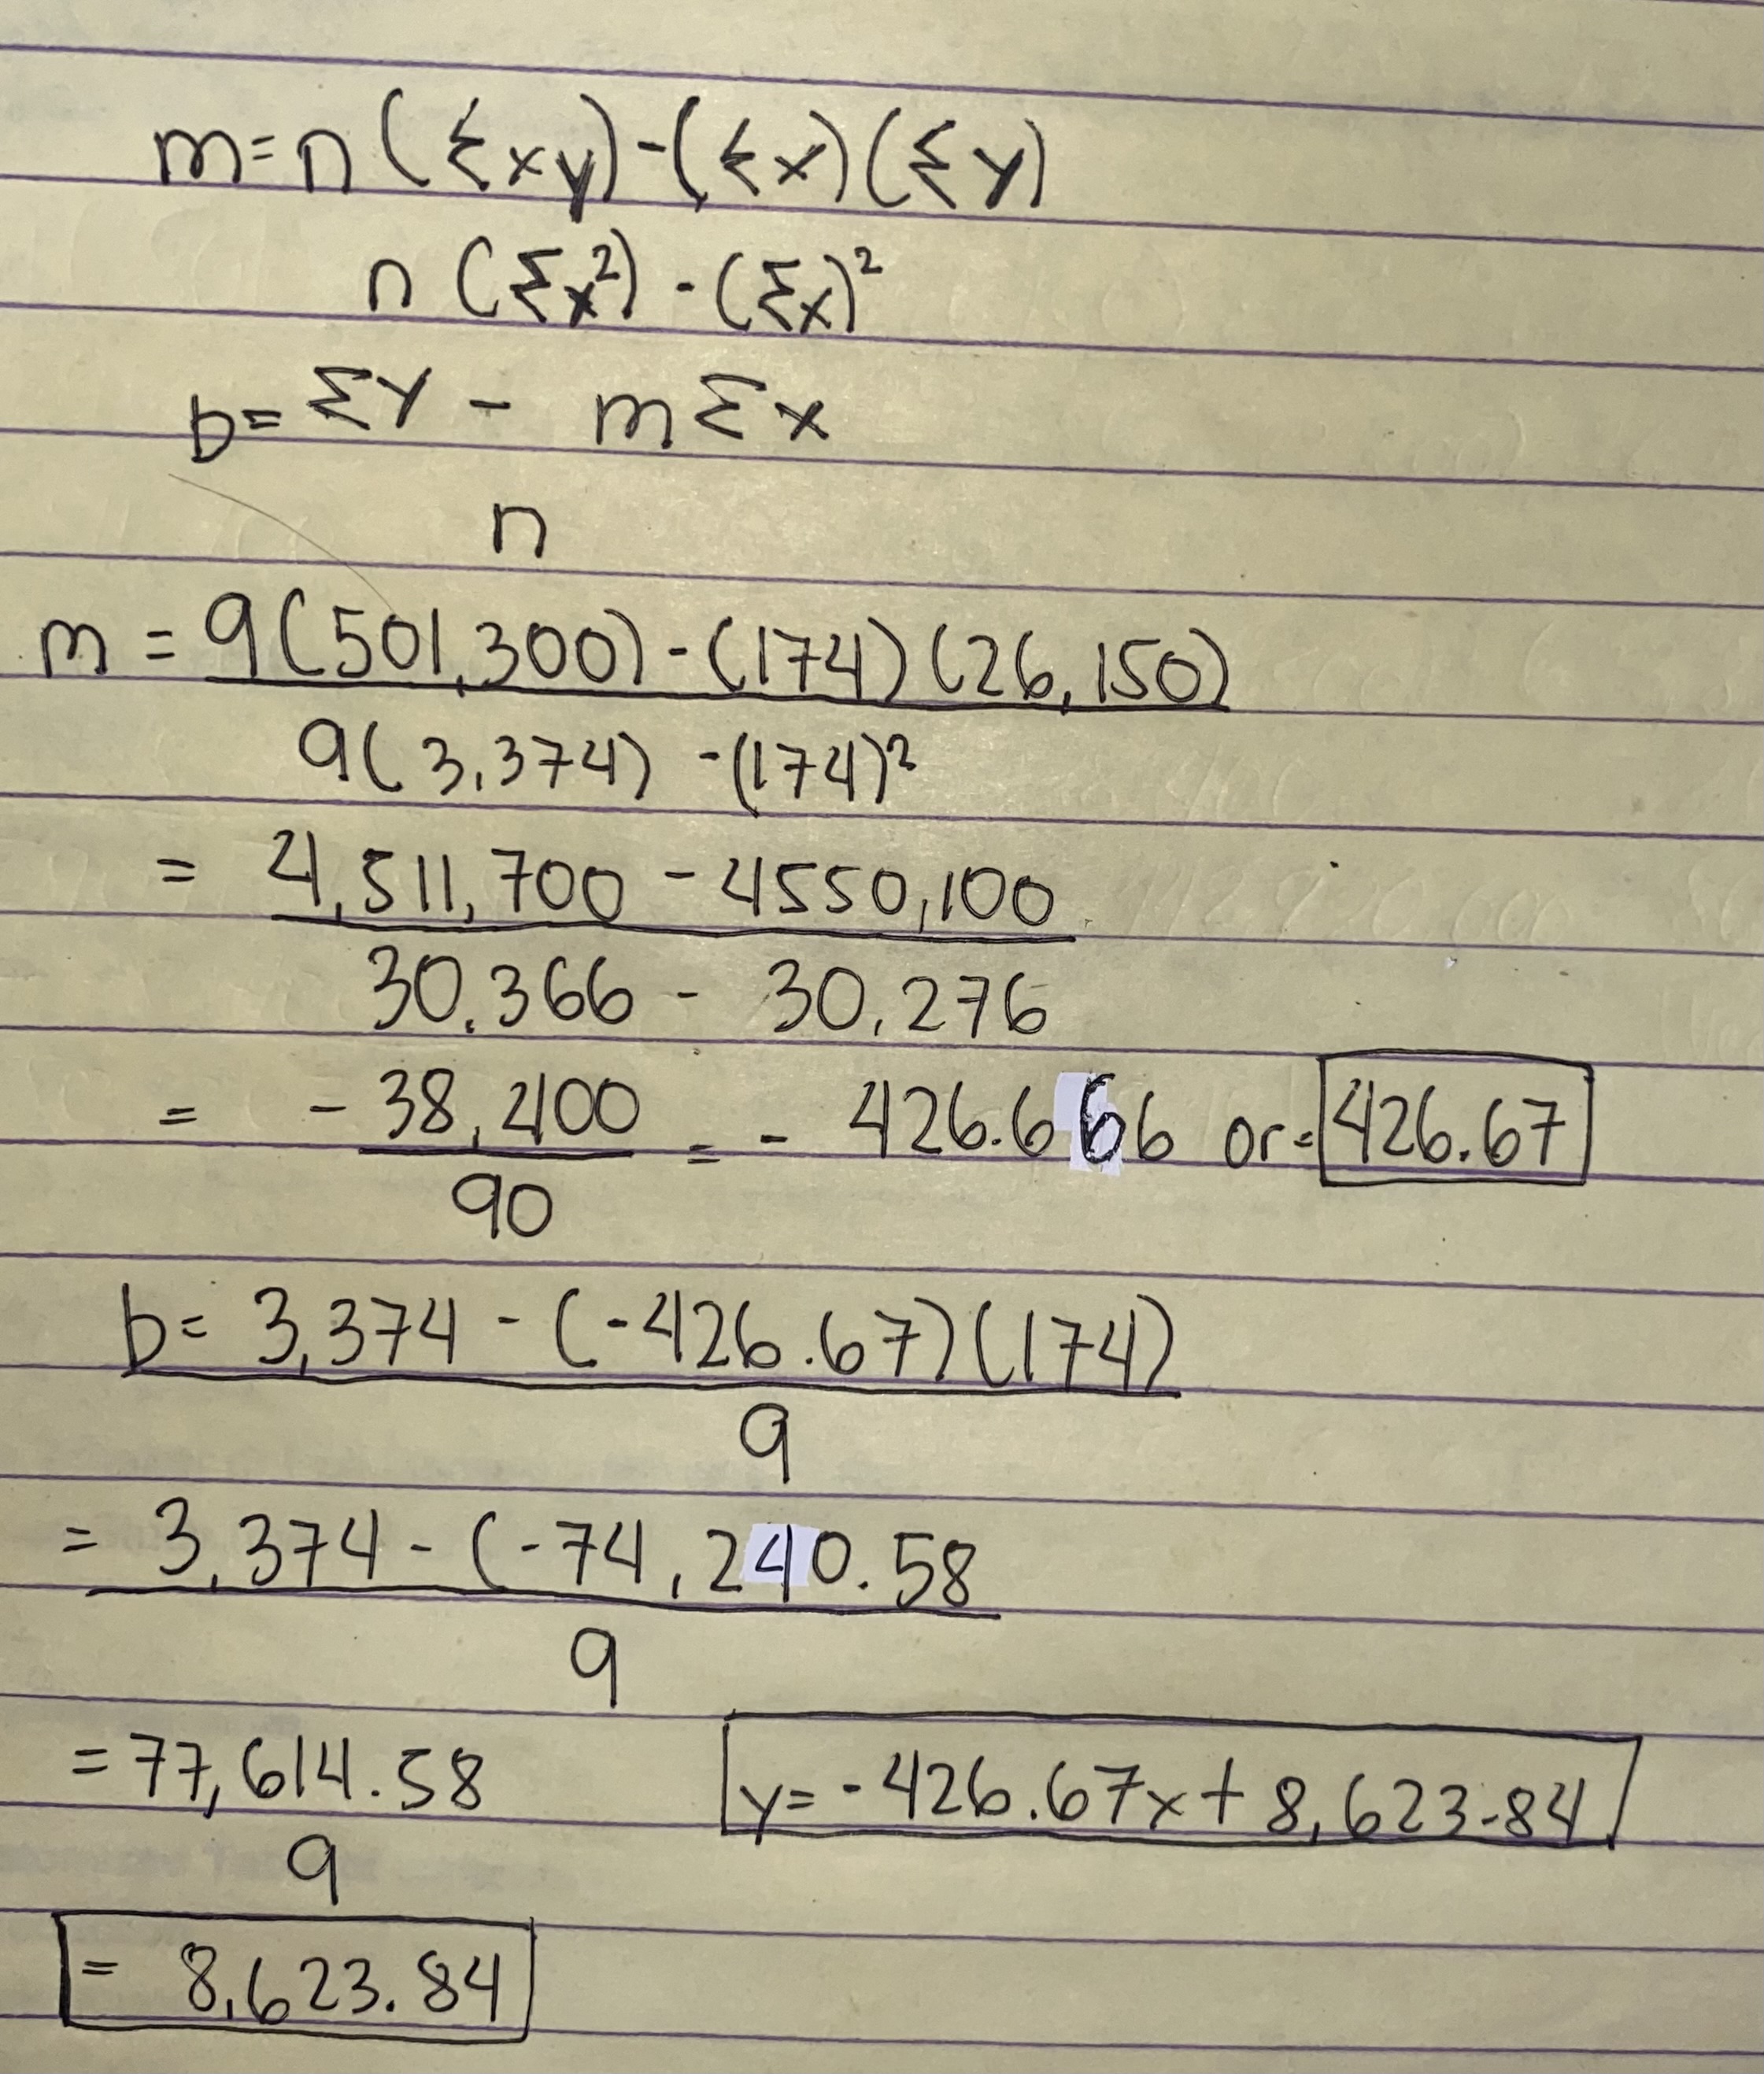 m=n(Σxy)-(Σx)(Σy)
n(Σx²)-(Σx)²
b=Σy - mΣx
n
m = 9(501,300)-(174)(26,150)
9(3,374) -(174)²
= 4,511,700 - 4550,100
30.366 - 30,276
= -38,400 = - 426.666 or = 426.67
90
b= 3,374 - (-426.67)(174)
9
= 3,374-(-74,240.58
9
= 77,614.58
9
y= -426.67x+8,623.84
= 8,623.84